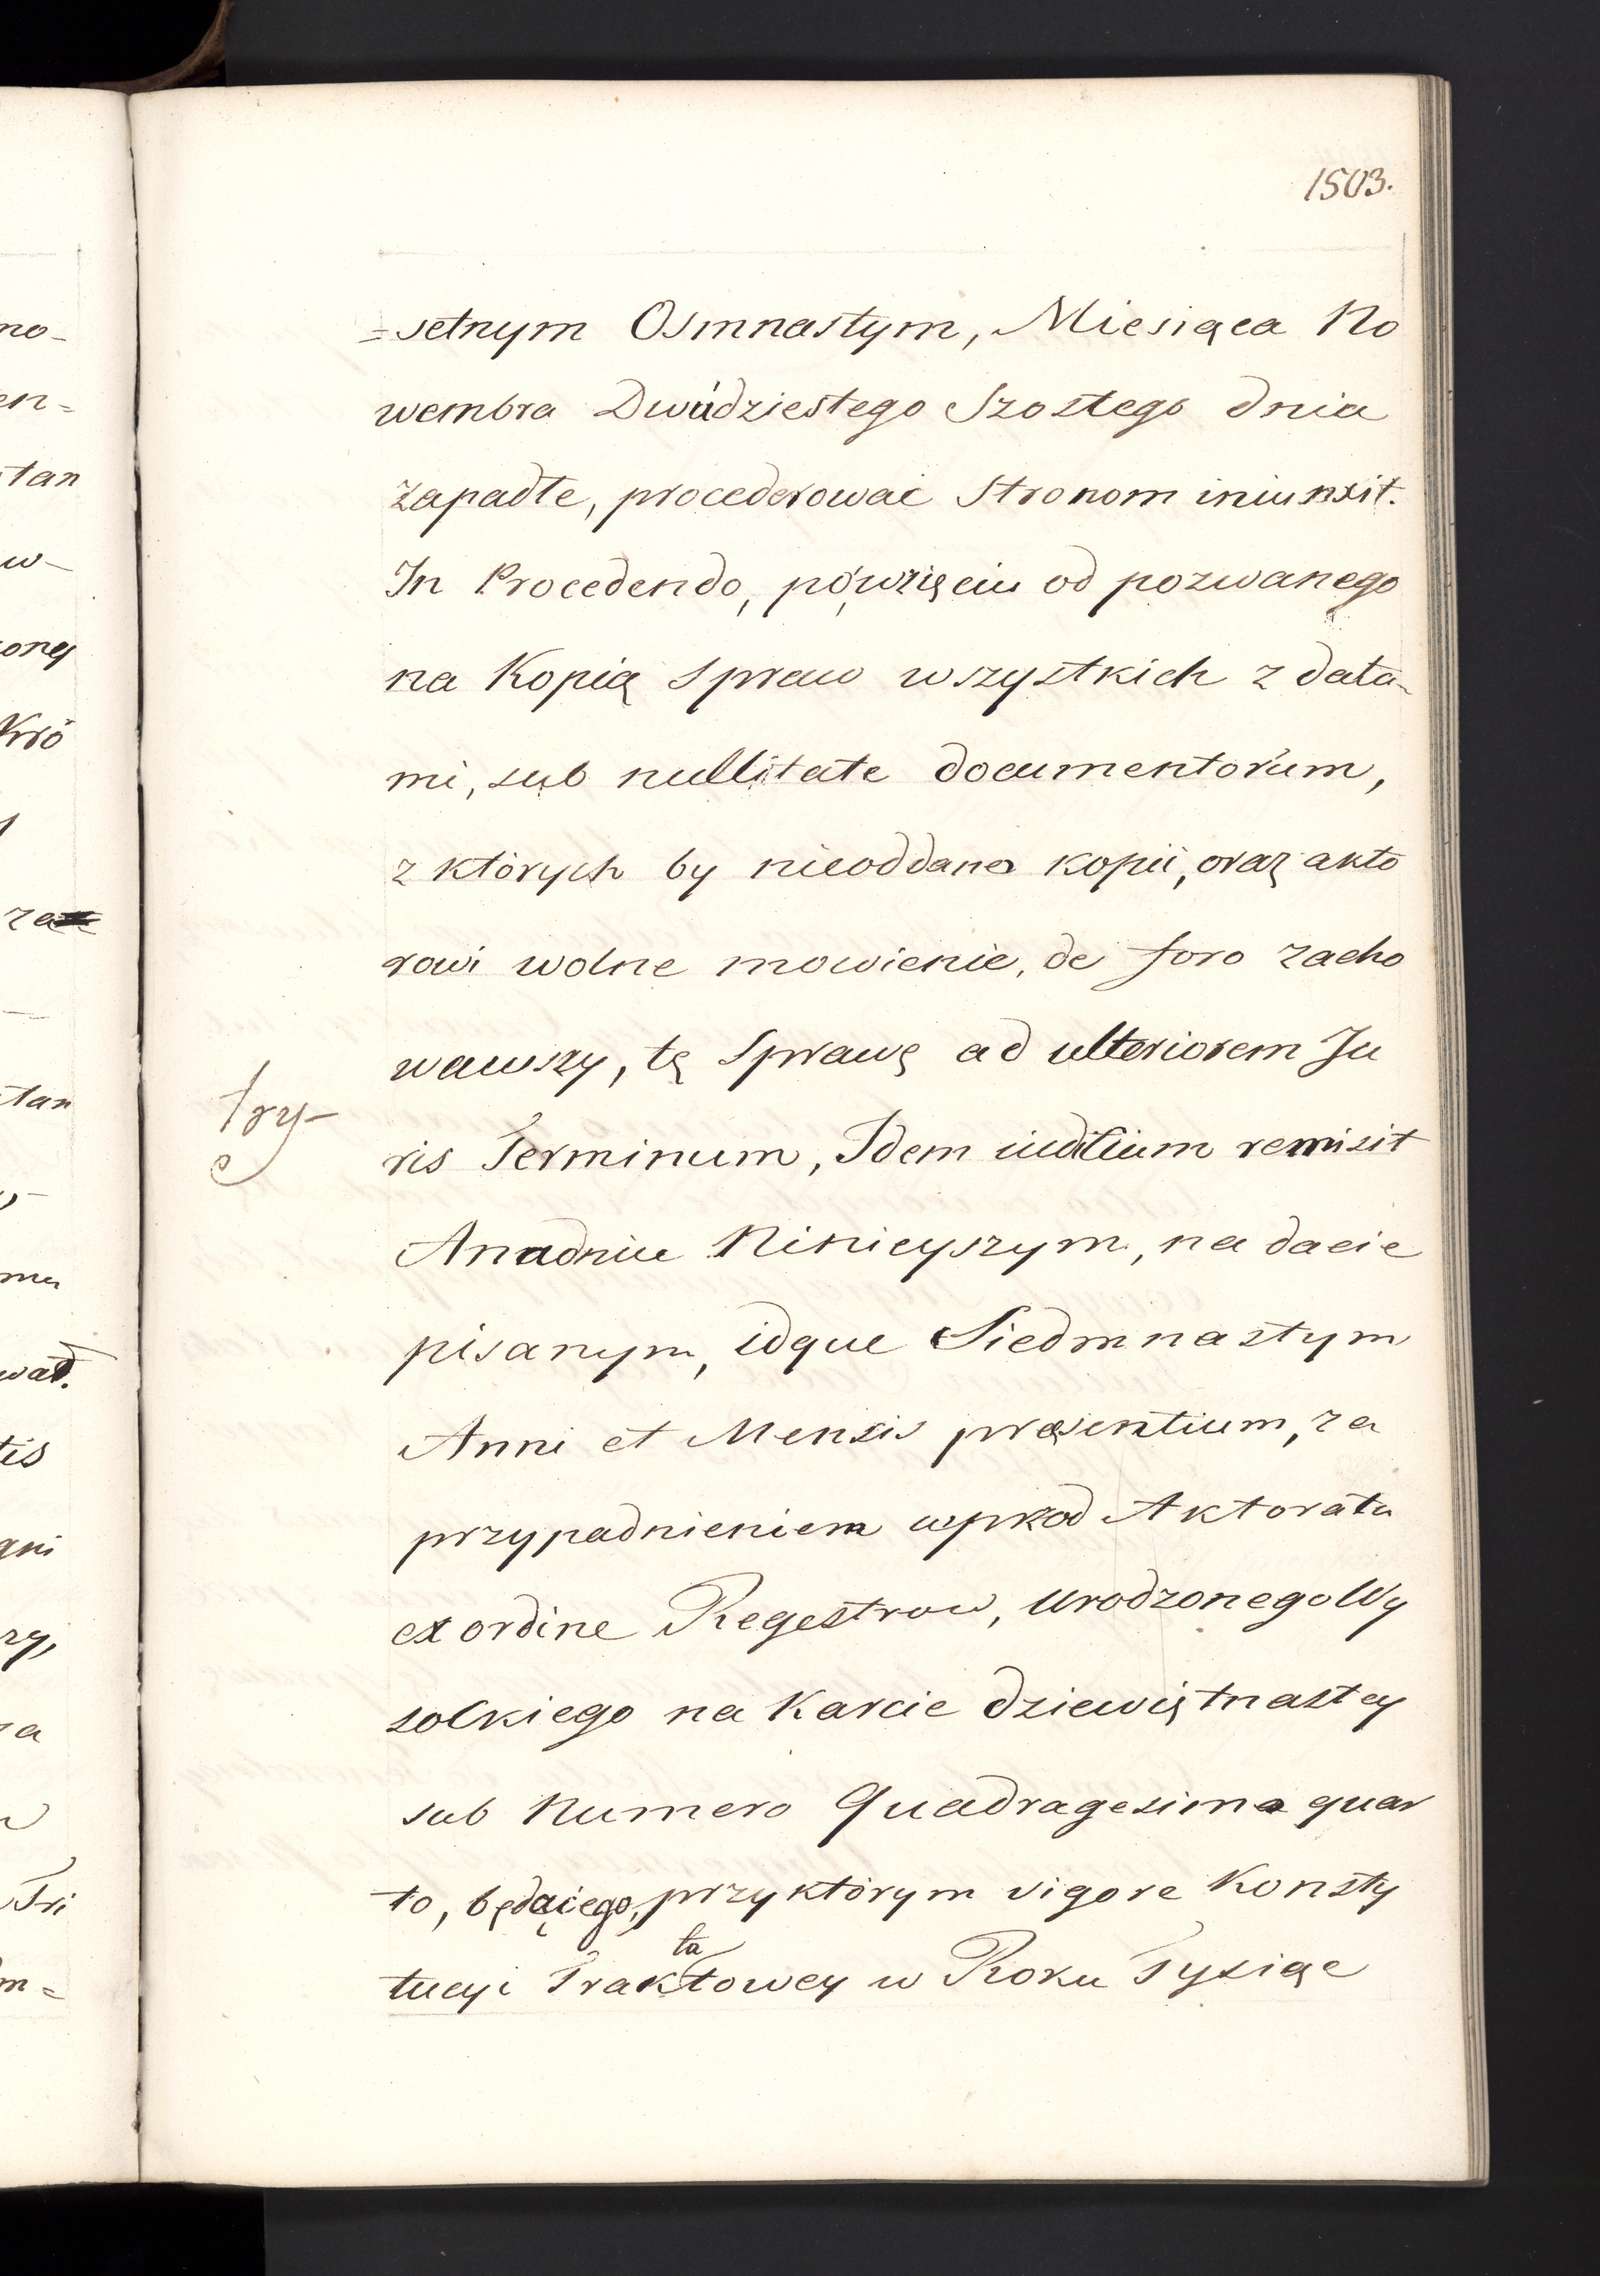 1503.
=setnym Osmnastym, Miesiąca No
wembra Dwudziestego Szostego dnia
zapadłe, procederować Stronom iniunxit.
In Procedendo, powzięciu od pozwanego
na Kopią spraw wszystkich z data-
mi, sub nullitate documentorum,
z których by nieoddano kopii, oraz akto
rowi wolne mowienie, de foro zacho
wawszy, tę Sprawę ad ulteriorem Ju
ris Terminum, Idem iuditium remisit
try-
A na dniu Ninieyszym, na dacie
pisanym, idque Siedmnastym
Anni et Mensis præsentium, za
przypadnieniem wprzod Aktoratu
ex ordine Regestrow, Urodzonego Wy
sockiego na Karcie dziewiętnastey
sub Numero Quadragesimo quar
to, będącego, przyktórym vigore Konsty
tucyi Traktatowey w Roku Tysiąc
no-
en=
tan
w-
oney
Kró
za
tan
mu
wał.
tis
gni
zy,
na
Tri
m=